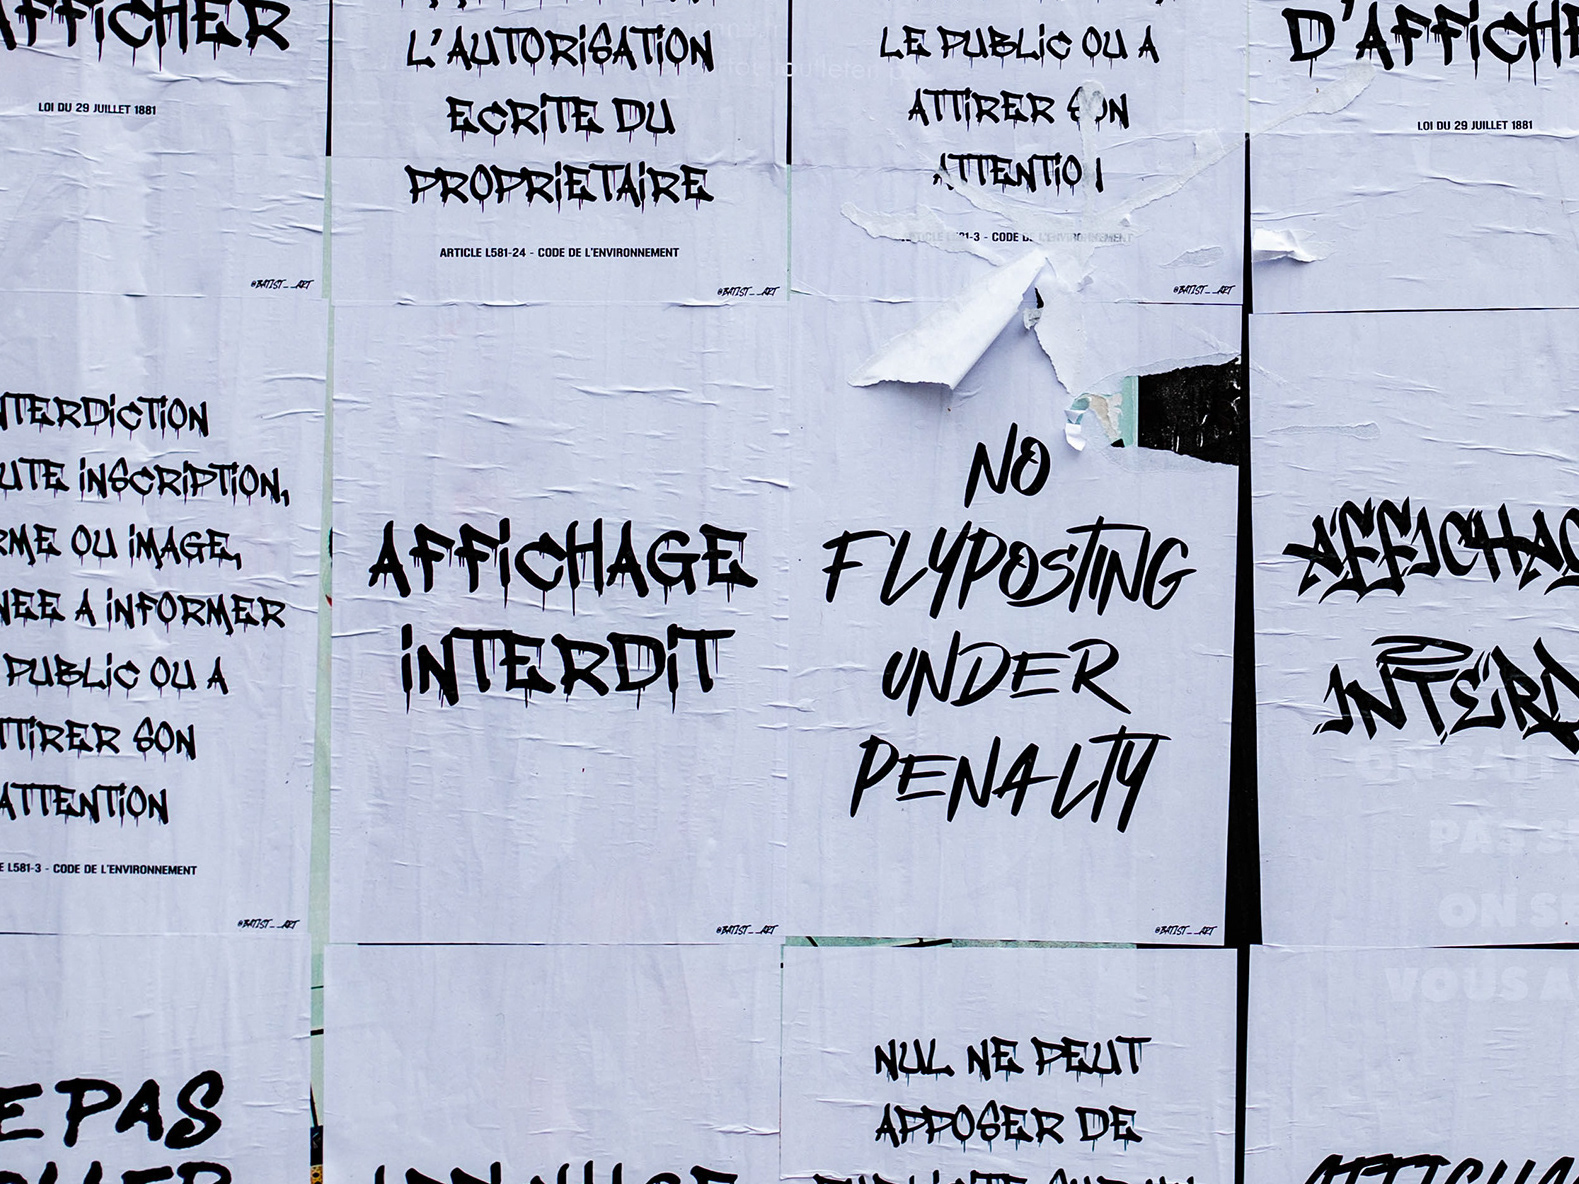 AFFICHER
LOI DU 29 JUILLET 1881
@BATIST__ART
L'AUTORISATION
ECRITE DU
PROPRIETAIRE
ARTICLE L581-24 - CODE DE L'ENVIRONNEMENT
@BATIST__ART
LE PUBLIC OU A
ATTIRER SON
ATTENTIO
ARTICLE L581-3 - CODE DE L'ENVIRONNEMENT
@BATIST__ART
D'AFFICHE
LOI DU 29 JUILLET 1881
NTERDICTION
UTE INSCRIPTION,
RME OU IMAGE,
NEE A INFORMER
PUBLIC OU A
TTIRER SON
ATTENTION
E L581-3 - CODE DE L'ENVIRONNEMENT
@BATIST__ART
AFFICHAGE
INTERDIT
@BATIST__ART
NO
FLYPOSTING
UNDER
PENALTY
@BATIST__ART
AFFICHAG
INTERD
PASS
ON S
VOUS A
E PAS
NUL NE PEUT
APPOSER DE